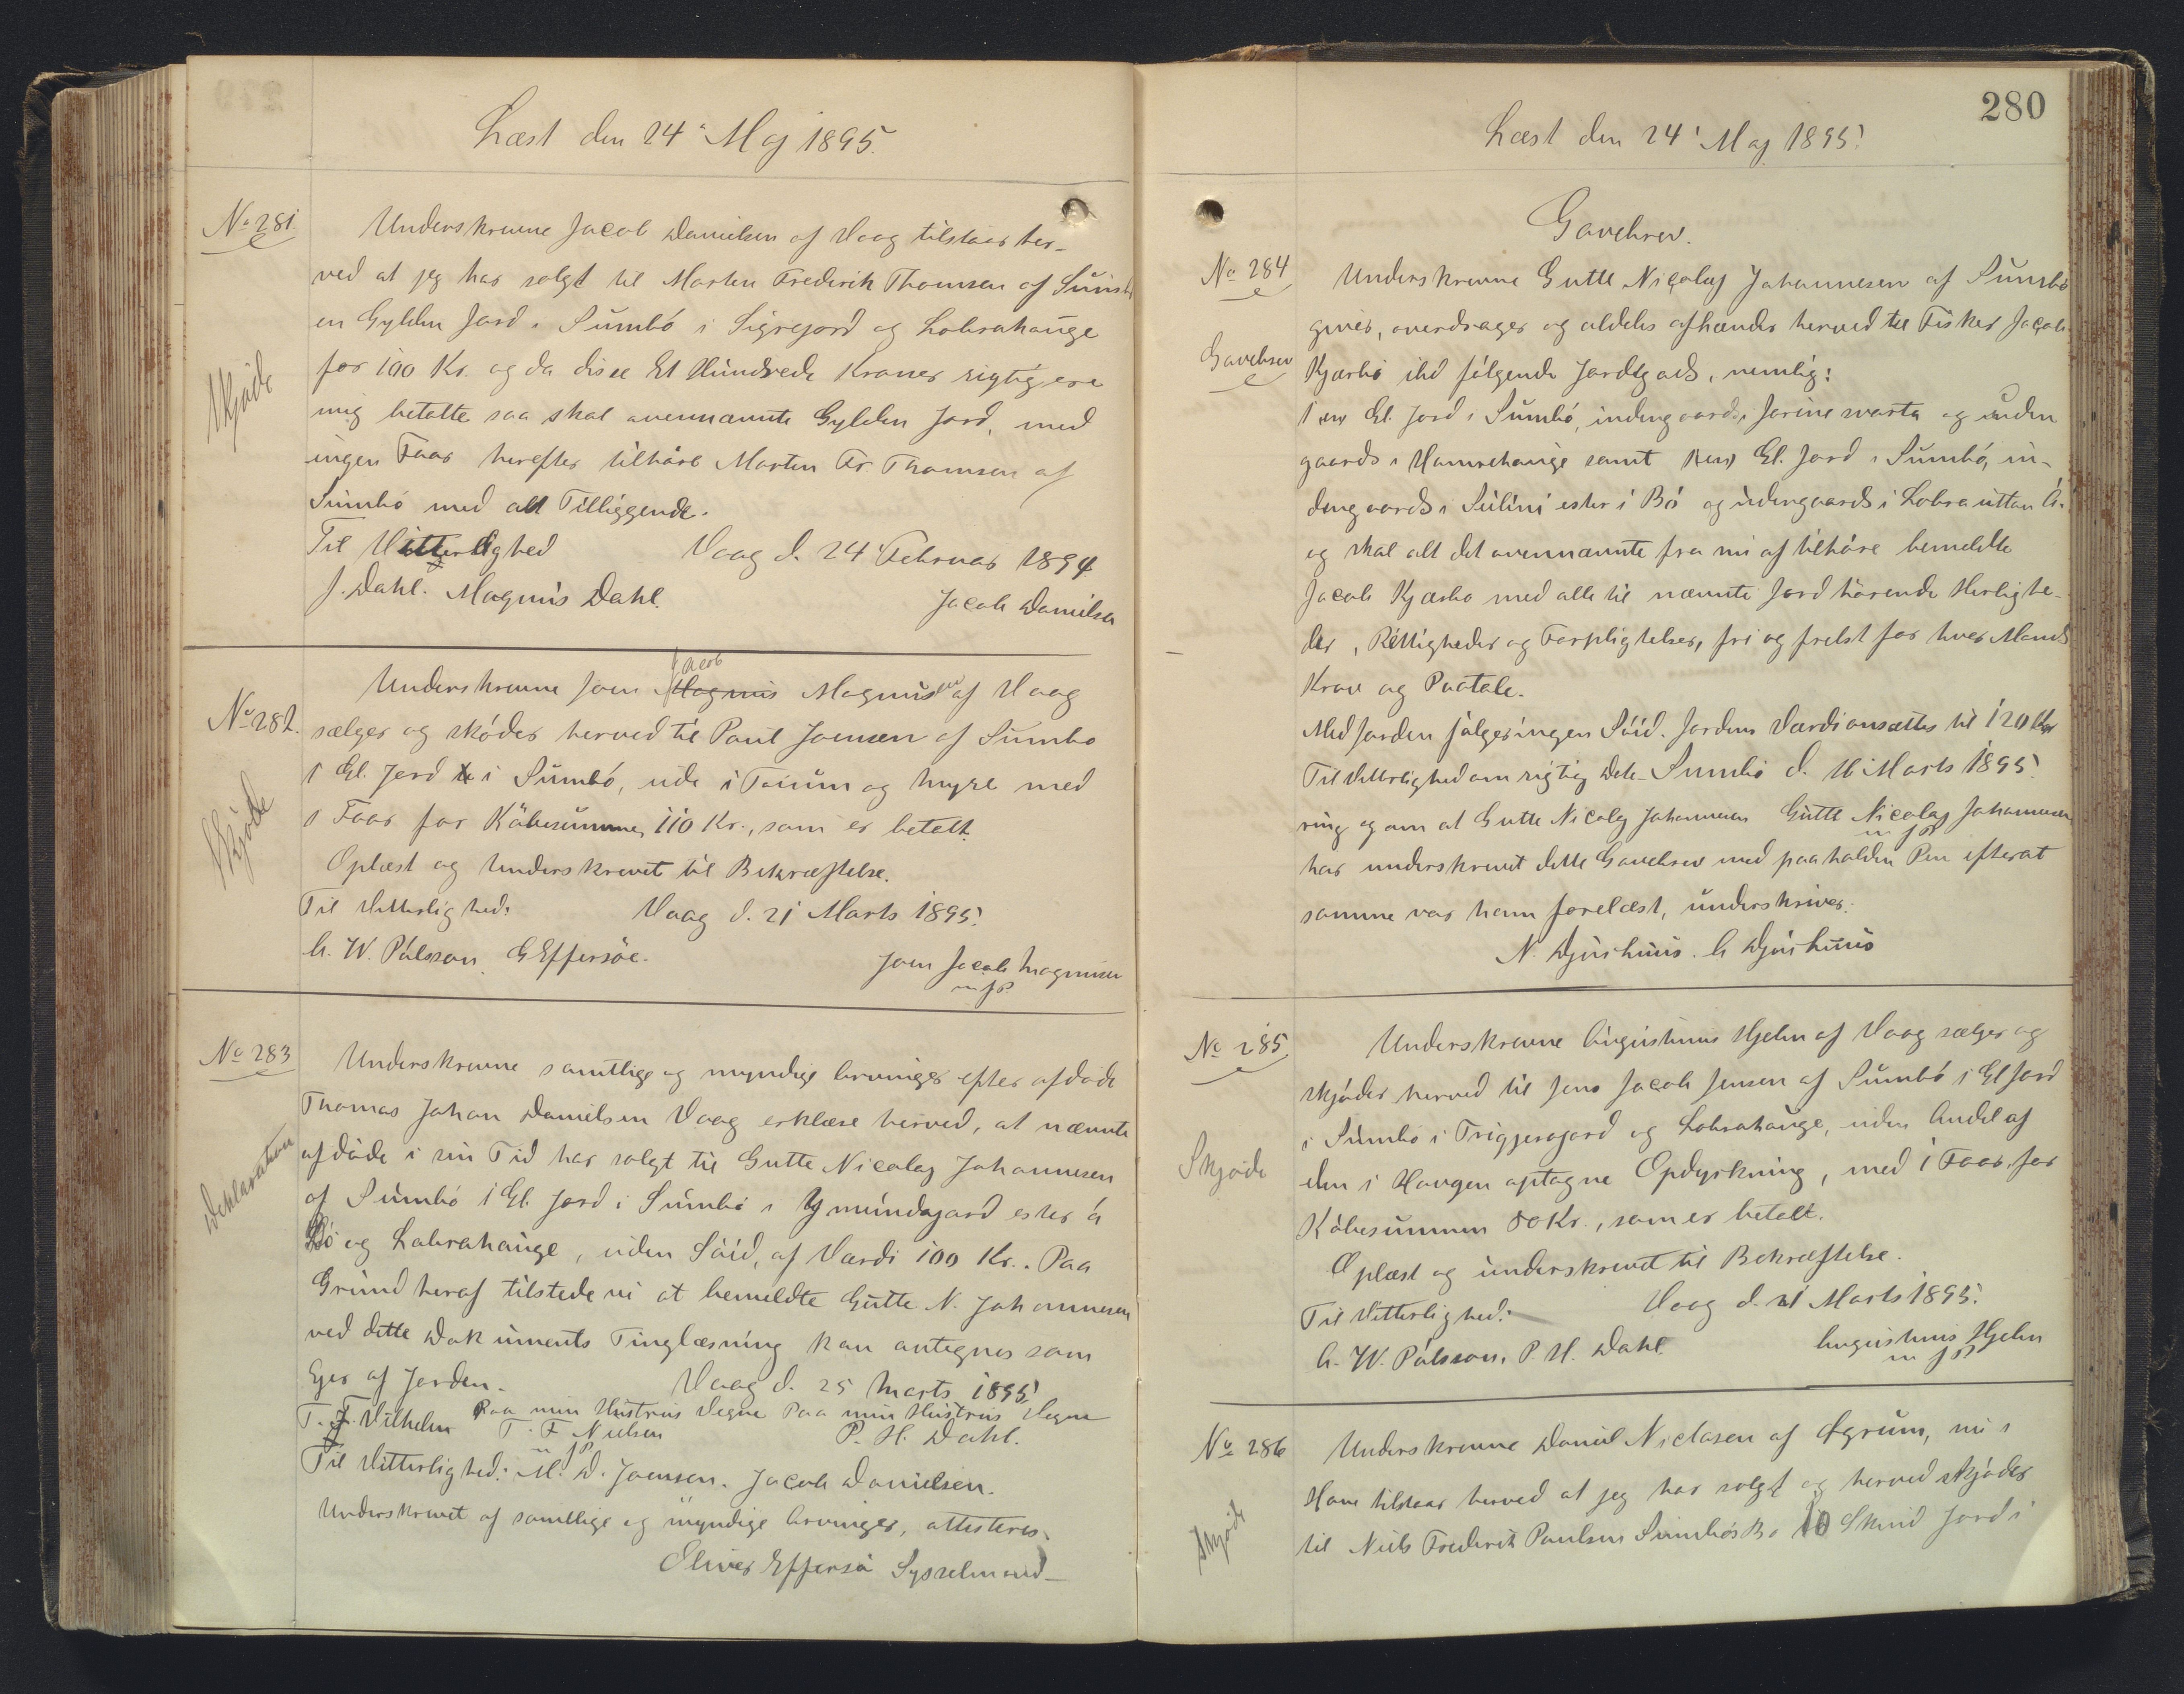 Læst den 24' Maj 1895.
No 281.
Skjøde
Underskrevne Jacob Danielsen af Vaag tilstaar her-
ved at jeg har solgt til Morten Frederik Thomsen af Sumbø
en Gylden Jord i Sumbø i Sigrejord og Lobrahauge
for 100 Kr. og da disse Et Hundrede Kroner rigtig ere
mig betalte saa skal ovennævnte Gylden Jord, med
ingen Faar herefter tilhøre Morten Fr. Thomsen af
Sumbø med alt Tilliggende.
Til Vitterlighed Vaag d. 24 Februar 1894
J. Dahl. Magnus Dahl. Jacob Danielsen
No 282.
Skjøde
Underskrevne Joen Magnus Jacob Magnussen af Vaag
sælger og skøder herved til Poul Joensen af Sumbø
1 Gl. Jord i Sumbø, ude i Toium og Myre med
1 Faar for Købesummen 110 Kr., som er betalt.
Oplæst og underskrevet til Bekræftelse.
Til Vitterlighed: Vaag d. 21 Marts 1895.
A. W. Pálsson. G Effersøe. Joen Jacob Magnusen
m f P
No 283
Deklaration
Underskrevne samtlige og myndige Arvinger efter afdøde
Thomas Johan Danielsen Vaag erklære herved, at nævnte
afdøde i sin Tid har solgt til Gutte Nicolaj Johannesen
af Sumbø 1 Gl. Jord i Sumbø i Ymundagard ester á
Bø og Lobrahauge, uden Sóid, af Værdi 100 Kr. Paa
Grund heraf tilstede vi at bemeldte Gutte N. Johannesen
ved dette Dokuments Tinglæsning kan antegnes som
Ejer af Jorden. Vaag d. 25 Marts 1895.
T. J. Vilhelm Paa min Hustrus Vegne Paa min Hustrus Vegne
T. F Nielsen P. H. Dahl.
m f P
Til Vitterlighed: M. D. Joensen. Jacob Danielsen.
Underskrevet af samtlige og myndige Arvinger, attesteres.
Oliver Effersø Sysselmand-
280
Læst den 24' Maj 1895.
Gavebrev.
No 284
Gavebrev
Underskrevne Gutte Nicolaj Johannesen af Sumbø
giver, overdrager og aldeles afhænder herved til Fisker Jacob
Kjærbo ihd følgende Jordegods, nemlig:
1 en Gl. Jord i Sumbø, indengaards i Jorine svarta og uden
gaards i Hamrehauge samt 1 en Gl. Jord i Sumbø, in-
dengaards i Sulini ester i Bø og udengaards i Lobra uttan Á.
og skal alt det ovennævnte fra nu af tilhøre bemeldte
Jacob Kjærbo med alle til nævnte Jord hørende Herlighe-
der, Rettigheder og Forpligtelser, fri og frelst for hver Mands
Krav og Paatale.
Med Jorden følger ingen Sóid. Jordens Værdi ansættes til 120 Kr
Til Vitterlighed om rigtig Date- Sumbø d. 16 Marts 1895.
ring og om at Gutte Nicolaj Johannesen Gutte Nicolaj Johannesen
m f P
har underskrevet dette Gavebrev med paaholden Pen efterat
samme var ham forelæst, underskriver:
N. Djurhuus. A Djurhuus
No 285
Skjøde
Underskrevne Augustinus Hjelm af Vaag sælger og
skjøder herved til Jens Jacob Jensen af Sumbø 1 Gl Jord
i Sumbø i Triggjerogard og Lobrahauge, uden Andel af
den i Haugen optagne Opdyrkning, med 1 Faar, for
Købesummen 80 Kr., som er betalt.
Oplæst og underskrevet til Bekræftelse.
Til Vitterlighed: Vaag d. 21 Marts 1895.
A. W. Pálsson. P. H. Dahl. Augustinus Hjelm
m f P
No 286
Skjøde
Underskrevne Daniel Niclasen af Øgrum, nu i
Hove tilstaar herved at jeg har solgt og herved skjøder
til Niels Frederik Paulsen Sumbø Bø 10 Skind Jord i